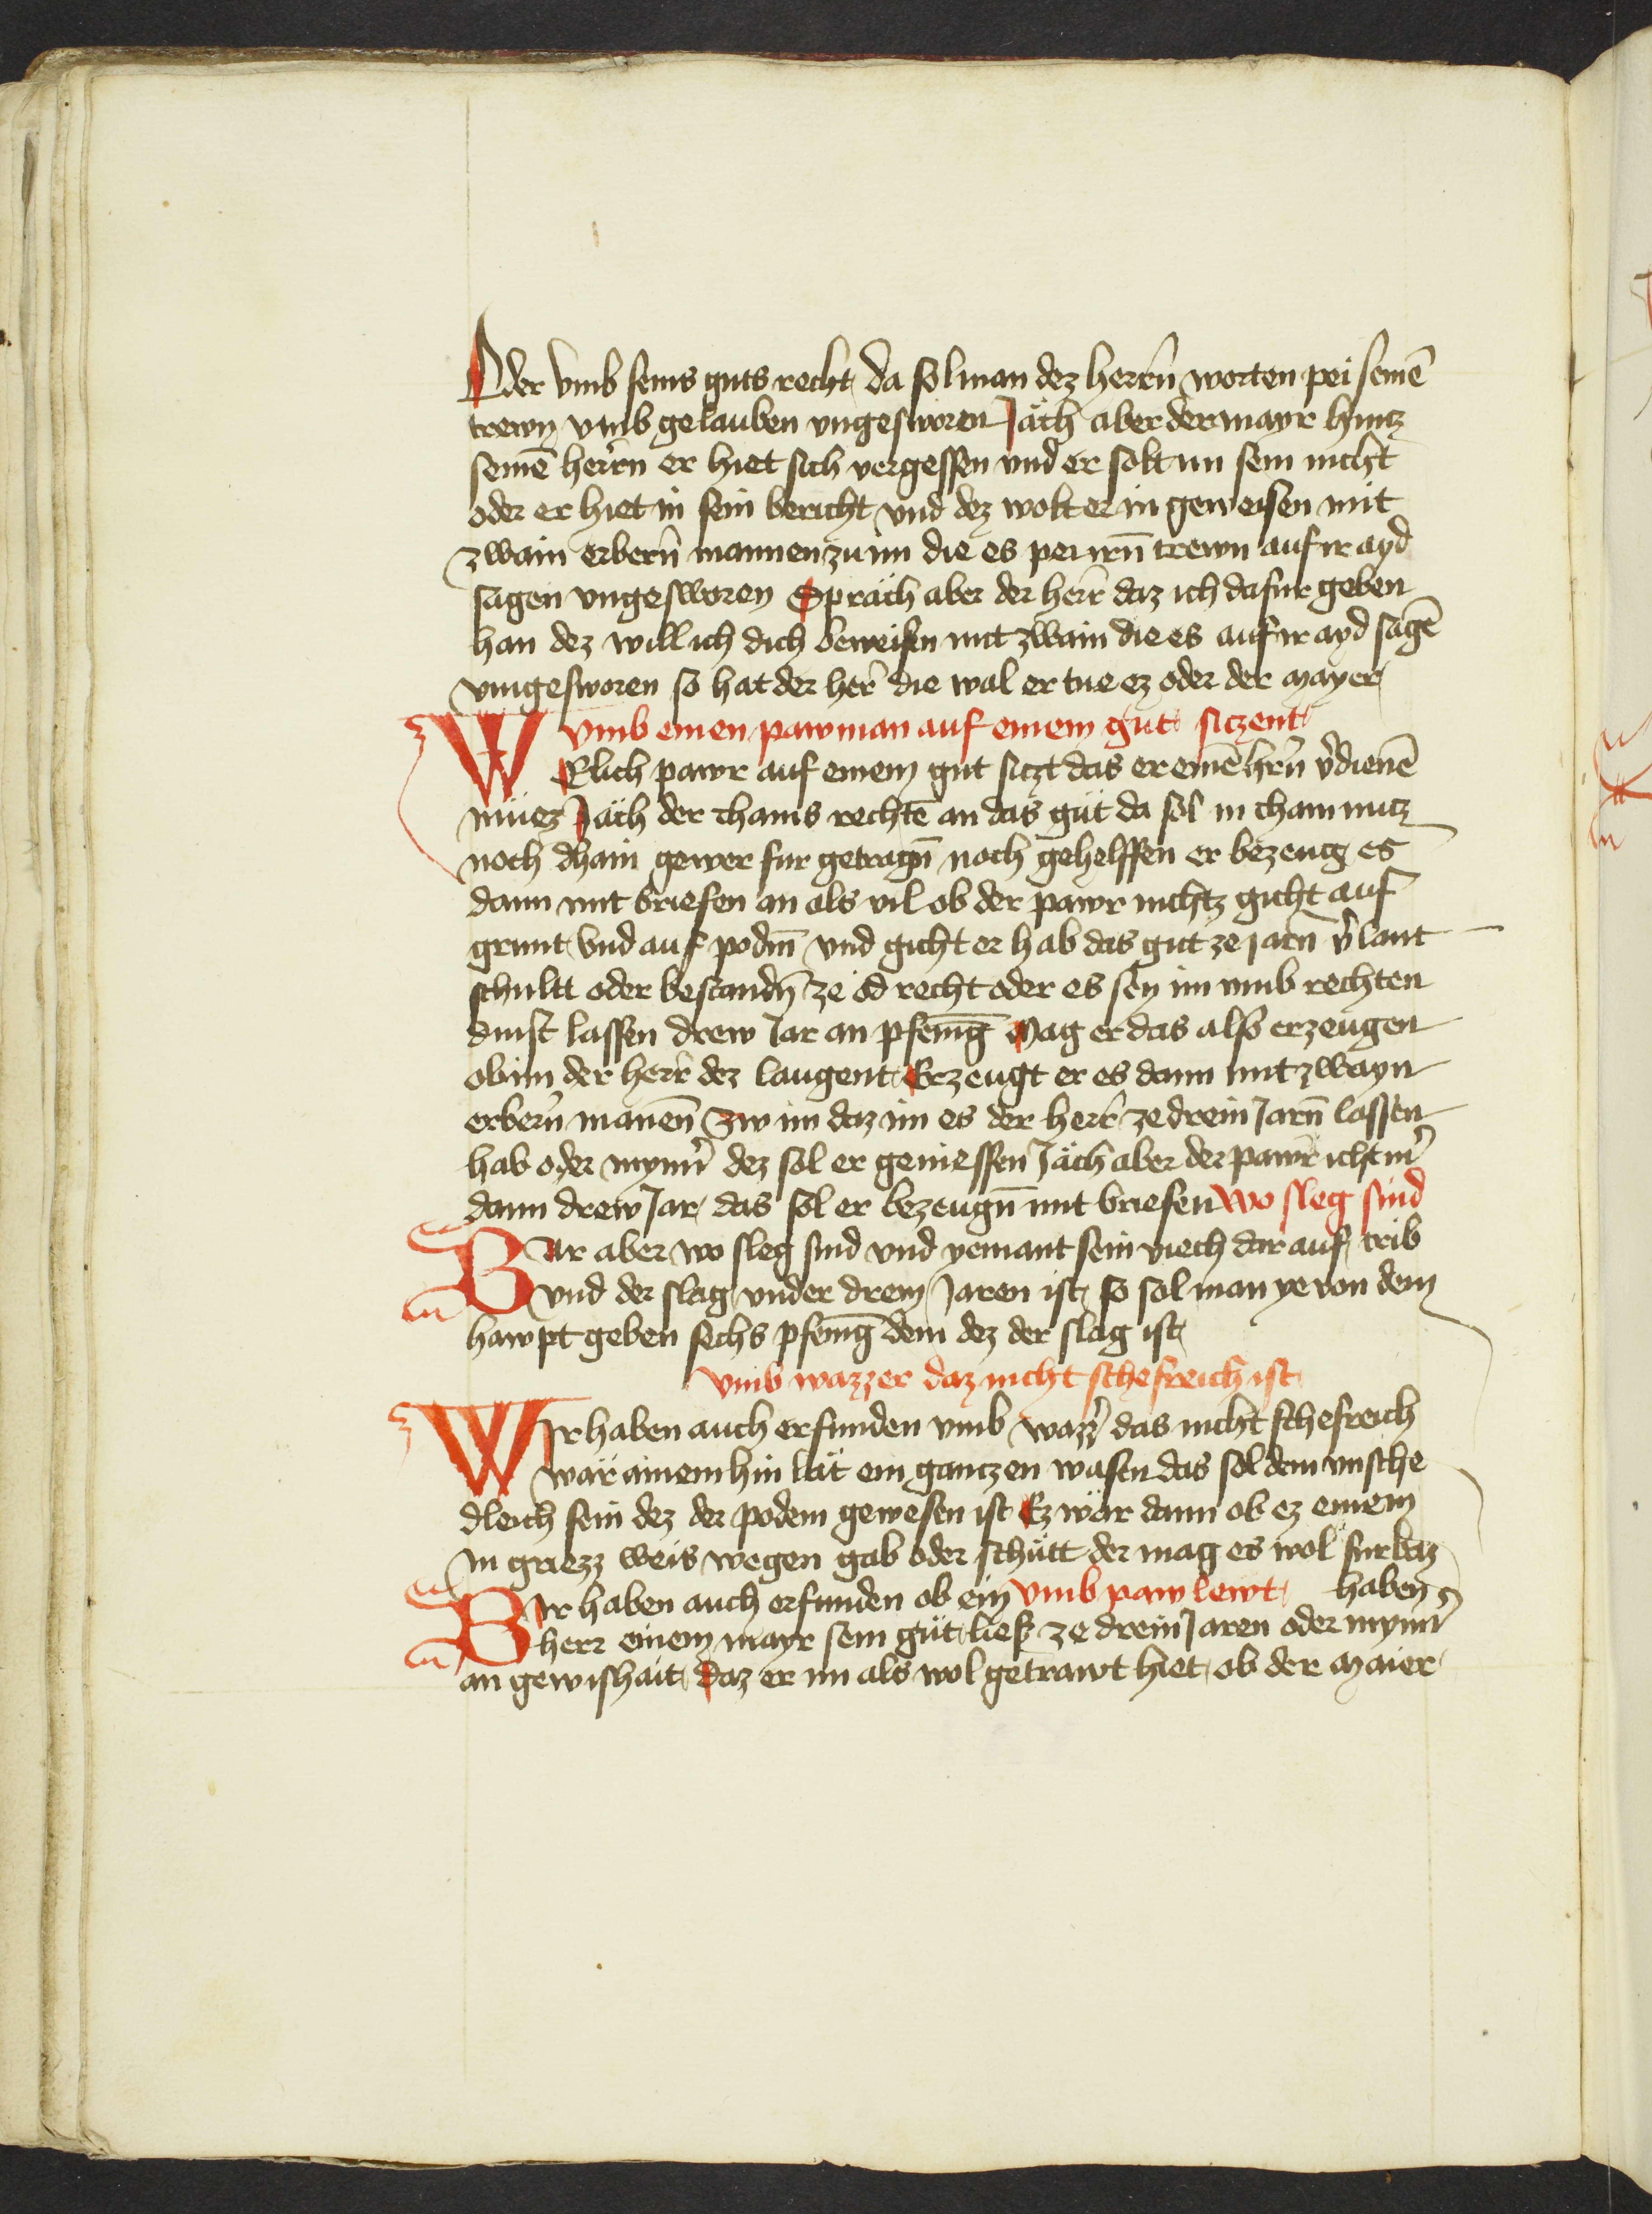 Oder vmb seins guts recht da sol man dez herrn̄ worten pei seinē
trewn vmb gelauben vngesworen Jäch aber der mayr hintz
seinē herrn er hiet sich vergessen vnd er solt im sein nicht
oder er hiet in sein bericht vnd dez wolt er in geweisen mit
zwain erbern̄ mannen zu im die es pei irn̄ trewn auf ir ayd
sagen vngesworen Spräch aber der herr daz ich dafur geben
han dez will ich dich beweisen mit zwain die es auf ir ayd sagē
vngesworen so hat der her̄ die wal er tue ez oder der mayer
vmb einen pawman auf einem gut siczent
WElich pawr auf einem gut siczt das er einē hrn̄ v̄dienē
müez Jäch der chains rechtē an das gut da sol in chain nutz
noch dhain gewer fur getragn̄ noch gehelffen er bezeug es
dann mit briefen an als vil ob der pawr nichtz gicht auf
grunt vnd auf podm̄ vnd gicht er hab das gut ze jarn̄ v̄lant
schultt oder bestandn̄ ze od recht oder es sey im vmb rechten
dinst lassen drew Jar an pfenīg Mag er das also erzeugen
ob im der herr dez laugent Erzeugt er es dann mit zwayn
erbern̄ manen̄ zw im daz im es der herr ze drein Jarn̄ lassen
hab oder mynn̄ dez sol er geniessen Jäch aber der pawr icht m̄
dann drew Jar das sol er bezeugn̄ mit briefen wo sleg sind
Wr aber wo sleg sind vnd yemant sein viech dar auf trib
vnd der slag vnder drein Jaren ist so sol man ye von dem
hawpt geben sechs pfenīg dem dez der slag ist
vmb wazzer daz nicht schefreich ist
WIr haben auch erfunden vmb wazz̄ das nicht schefreich
wär ainem hin lät ein gantzen wasen das sol dem vnsche
dleich sein dez der podem gewesen ist Ez wär dann ob ez einem
in griezz weis wegen gab oder schütt der mag es wol furbaz
haben
WIr haben auch erfunden ob ein vmb paw lewt
herr einem mayr sein gut lies ze drein Jaren oder mynn̄
an gewishait daz er im als wol getrawt hiet ob der maier